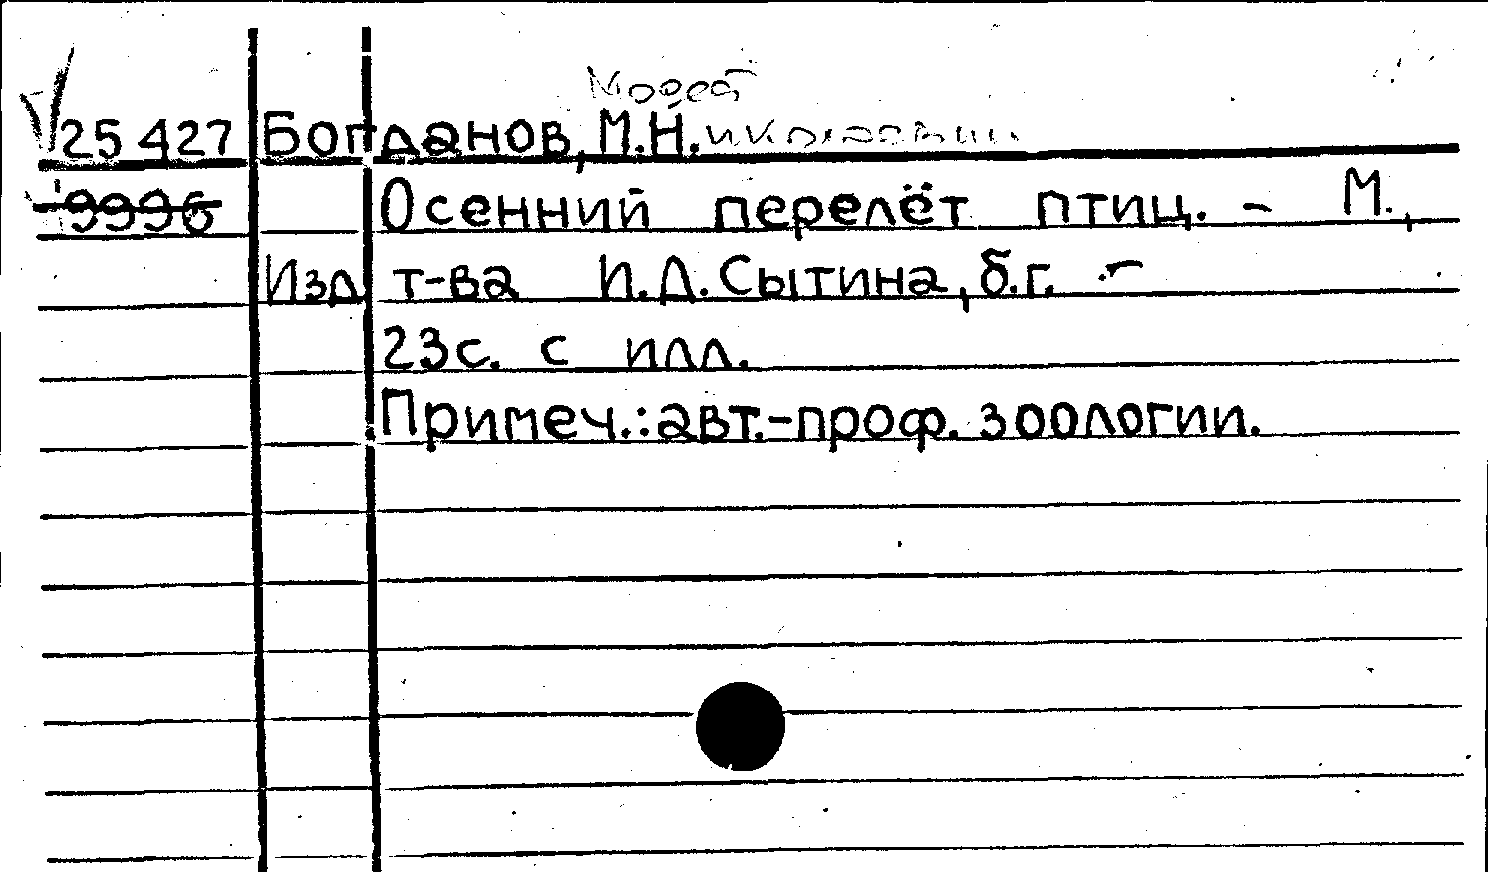 Модест
25427 Богданов, М.Н. иколаевич
9996 Осенний перелёт птиц. - М.,
Изд. т-ва И.Д. Сытина, б.г. -
23с. с илл.
Примеч.: авт.-проф. зоологии.